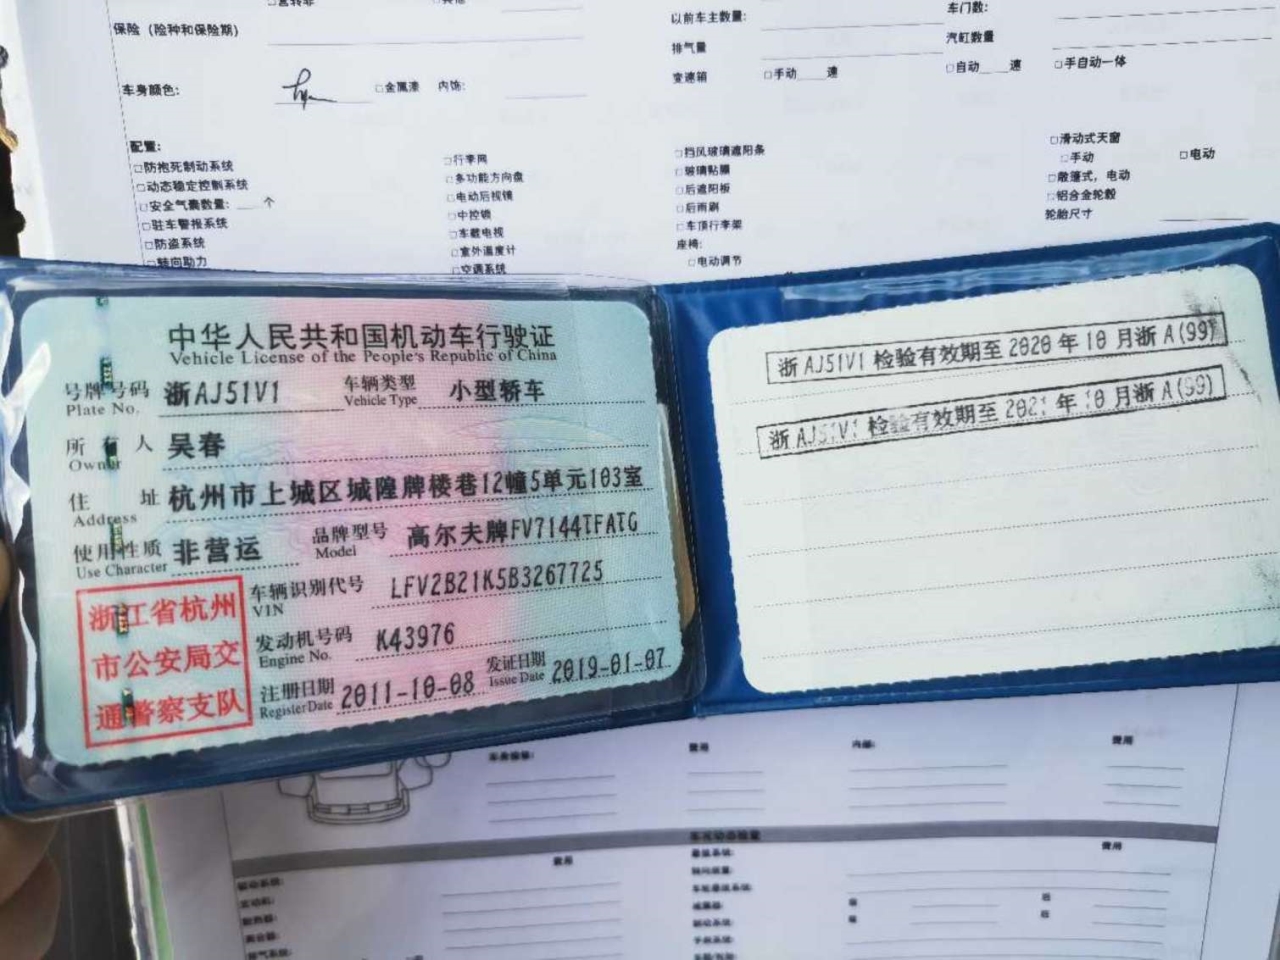 保险（险种和保险期）
以前车主数量:
车门数:
排气量
汽缸数量
车身颜色:
□金属漆
内饰:
变速箱
□手动
速
□自动
速
□手自动一体
配置:
□防抱死制动系统
□动态稳定控制系统
□安全气囊数量:
个
□驻车警报系统
□防盗系统
□转向助力
□行李网
□多功能方向盘
□电动后视镜
□中控锁
□车载电视
□室外温度计
□空调系统
□挡风玻璃遮阳条
□玻璃贴膜
□后遮阳板
□后雨刷
□车顶行李架
座椅:
□电动调节
□滑动式天窗
□手动
□电动
□敞篷式，电动
□铝合金轮毂
轮胎尺寸
中华人民共和国机动车行驶证
Vehicle License of the People's Republic of China
号牌号码 浙AJ51V1 车辆类型 小型轿车
Plate No. Vehicle Type
所有人 吴春
Owner
住址 杭州市上城区城隍牌楼巷12幢5单元103室
Address
使用性质 非营运 品牌型号 高尔夫牌FV7144TFATG
Use Character Model
车辆识别代号 LFV2B21K5B3267725
VIN
发动机号码 K43976
Engine No.
注册日期 2011-10-08 发证日期 2019-01-07
Register Date Issue Date
浙江省杭州
市公安局交
通警察支队
浙AJ51V1 检验有效期至 2020 年 10 月浙 A(99)
浙AJ51V1 检验有效期至 2021 年 10 月浙 A(99)
费用
内部:
费用
费用
费用